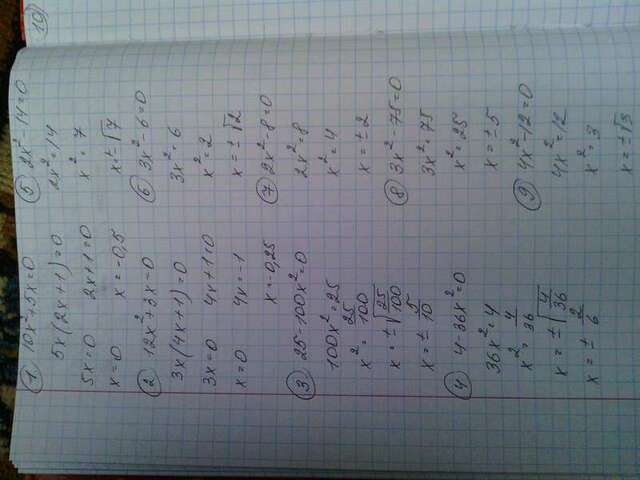 1 10x²+5x=0
5x(2x+1)=0
5x=0 2x+1=0
x=0 x=-0,5
2 12x²+3x=0
3x(4x+1)=0
3x=0 4x+1=0
x=0 4x=-1
x=-0,25
3 25-100x²=0
100x²=25
x²=25/100
x=±√25/100
x=±5/10
4 4-36x²=0
36x²=4
x²=4/36
x=±√4/36
x=±2/6
5 2x²-14=0
2x²=14
x²=7
x=±√7
6 3x²-6=0
3x²=6
x²=2
x=±√2
7 2x²-8=0
2x²=8
x²=4
x=±2
8 3x²-75=0
3x²=75
x²=25
x=±5
9 4x²-12=0
4x²=12
x²=3
x=±√3
10